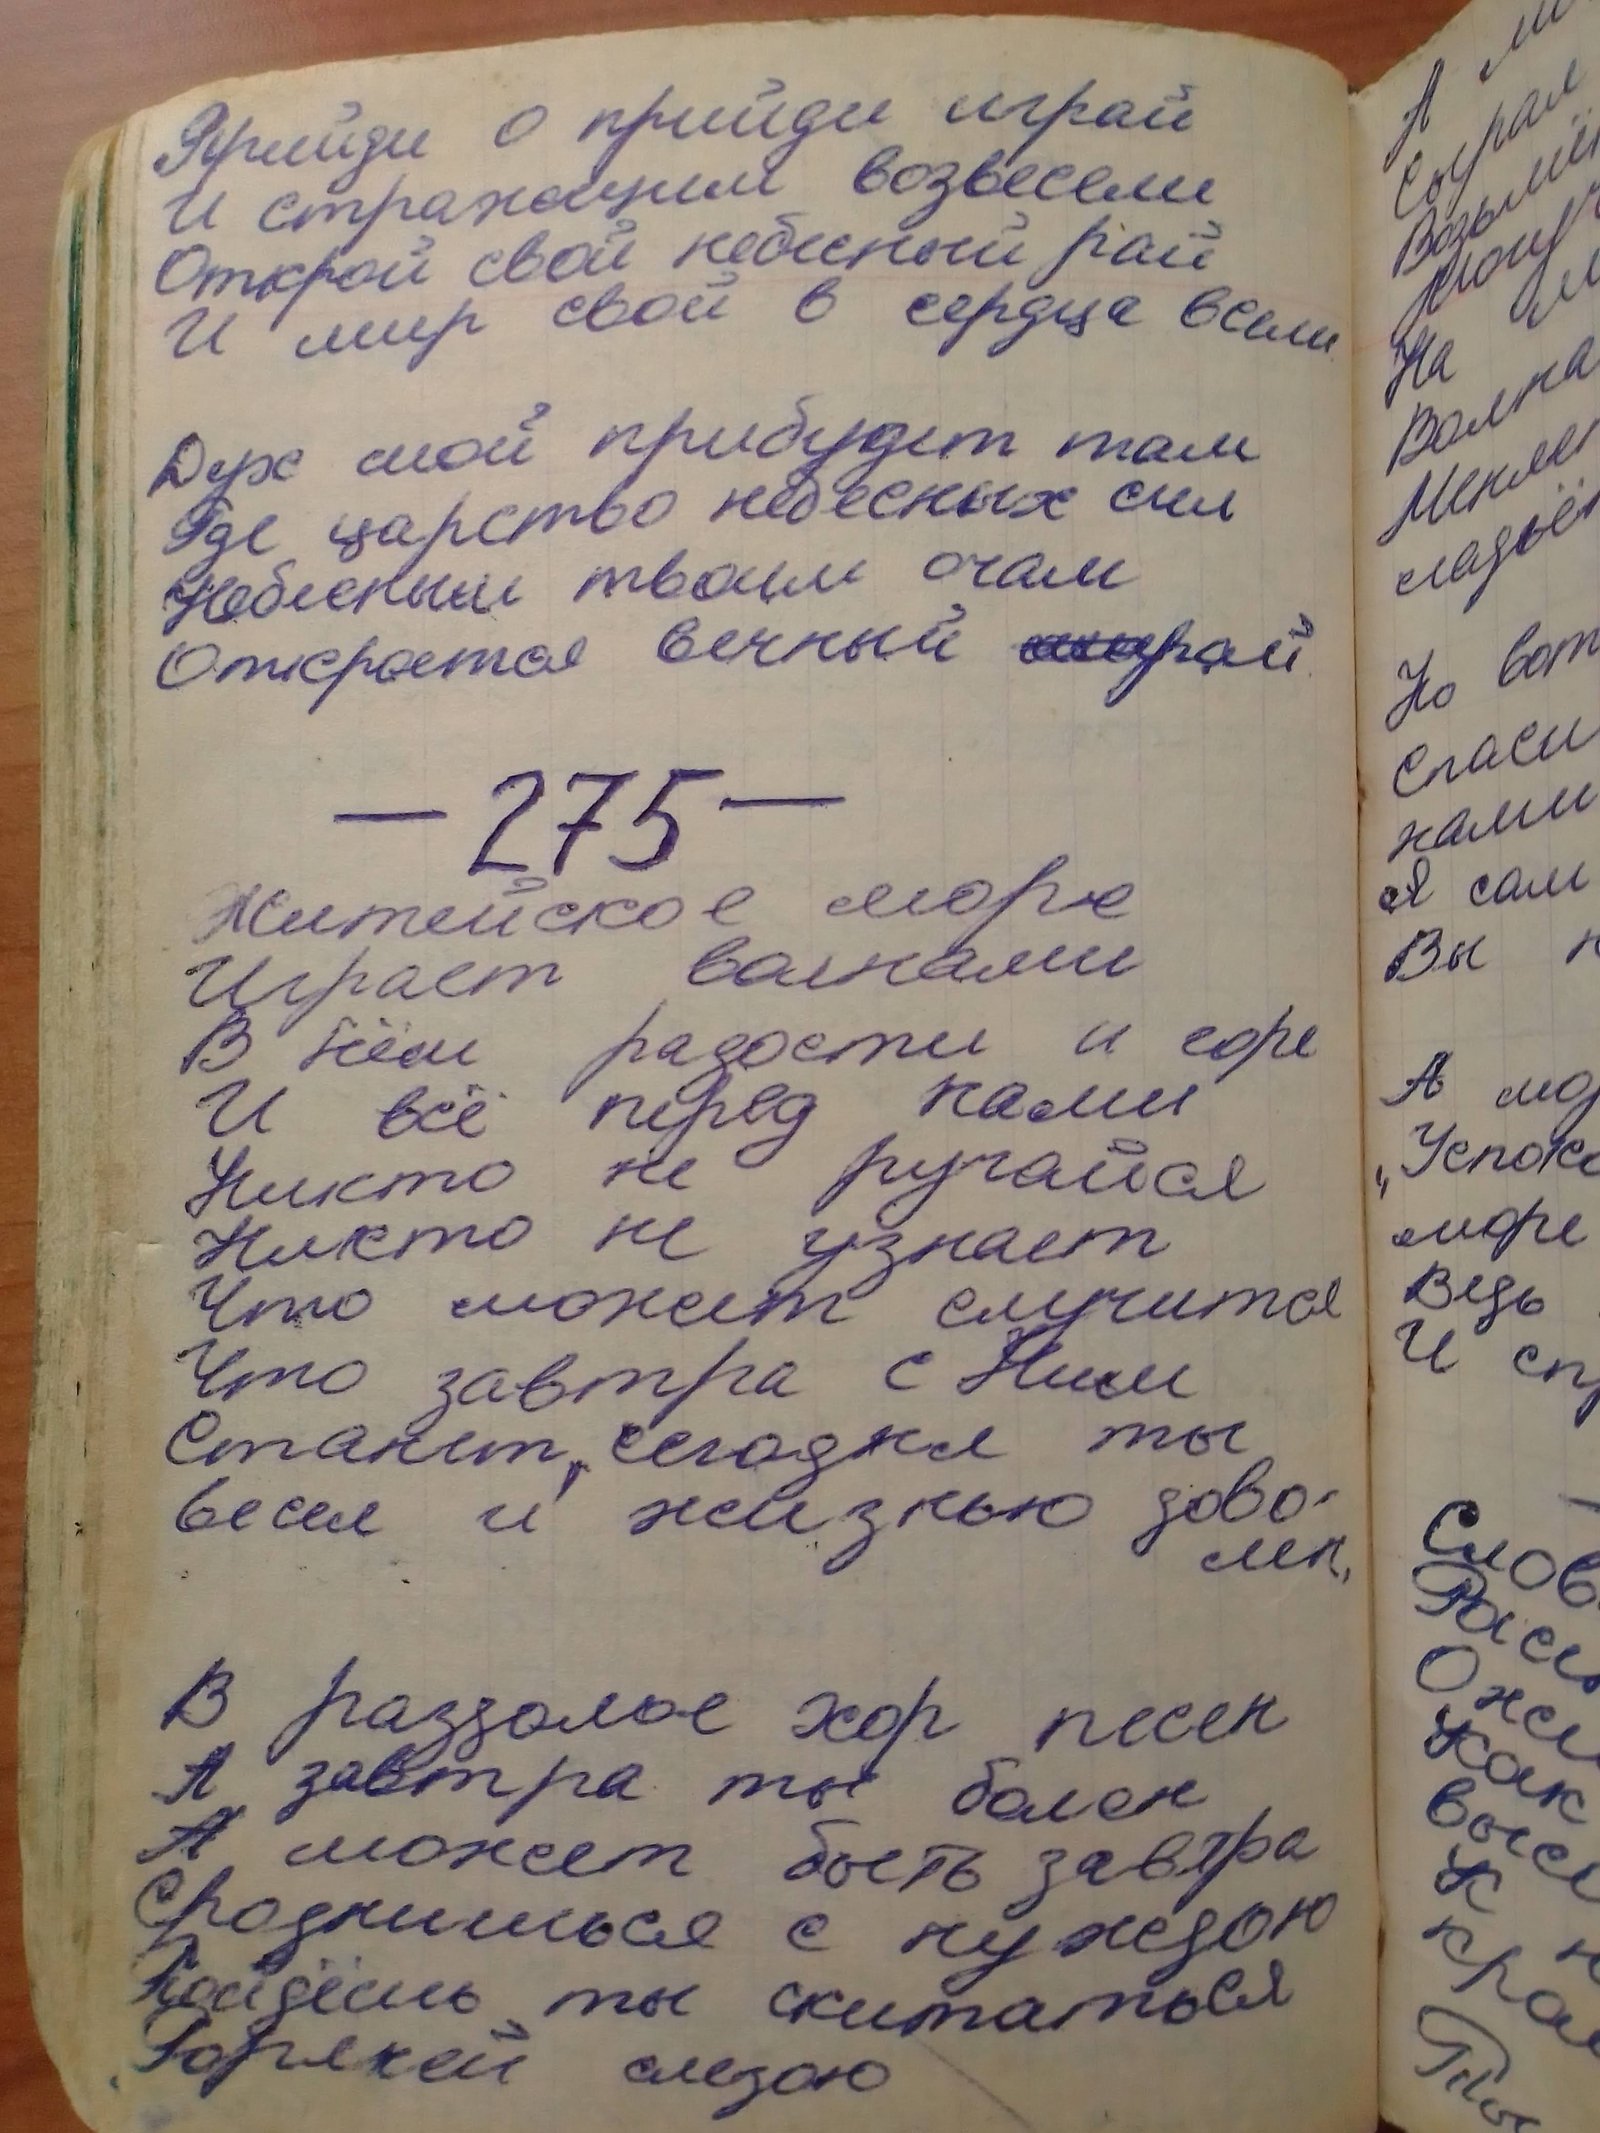 Прийди о прийди играй
И стражущим возвесели
Открой свой небесный рай
И мир свой в сердца всели
Дух мой прибудет там
Где царство небесных сил
Небесным твоим очам
Откроется вечный рай
— 275 —
Житейское море
Играет волнами
В нём радости и горе
И всё перед нами
Никто не ручайся
Никто не узнает
Что может случится
Что завтра с Ним
Станет, сегодня ты
весел и жизнью дово-
лен,
В раздолье хор песен
А завтра ты болен
А может быть завтра
Сроднишься с нуждою
Пойдёшь ты скитаться
Горькей слезою
А
Сыграл
На
Волна
Но вот
Спаси
нами
Я сам
Вы н
А мор
„Успоко
море
Ведь
И сп
Слов
Как
К н